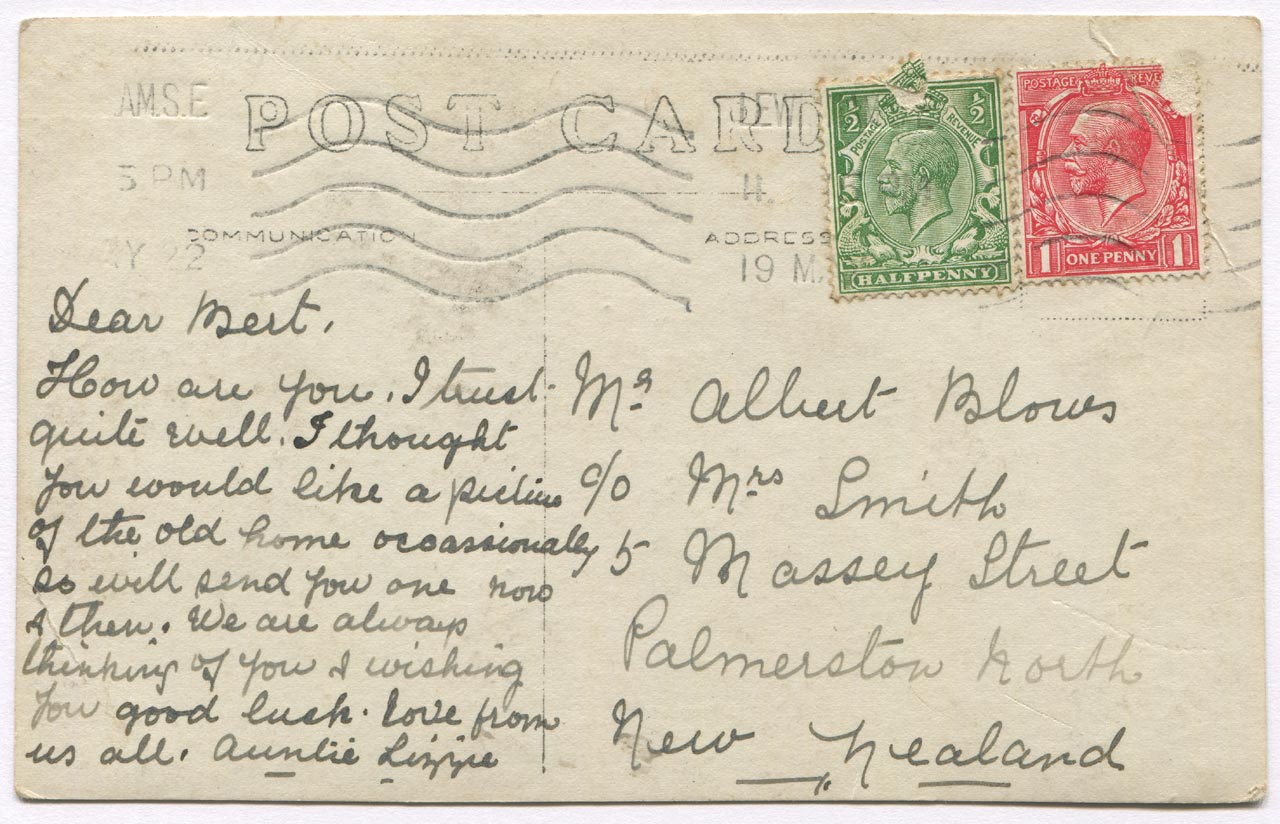 POST CARD
AM.S.E
5 PM
Y 22
LEW
11.
19 MA
COMMUNICATION
ADDRESS
½ ½
POSTAGE REVENUE
HALFPENNY
POSTAGE REVE
1 ONE PENNY 1
Dear Bert,
How are you. I trust
quite well. I thought
you would like a picture
of the old home ocoassionally
so will send you one now
& then. We are always
thinking of you & wishing
you good luck. Love from
us all. Auntie Lizzie
Mr Albert Blows
c/o Mrs Smith
5 Massey Street
Palmerston North
New Zealand